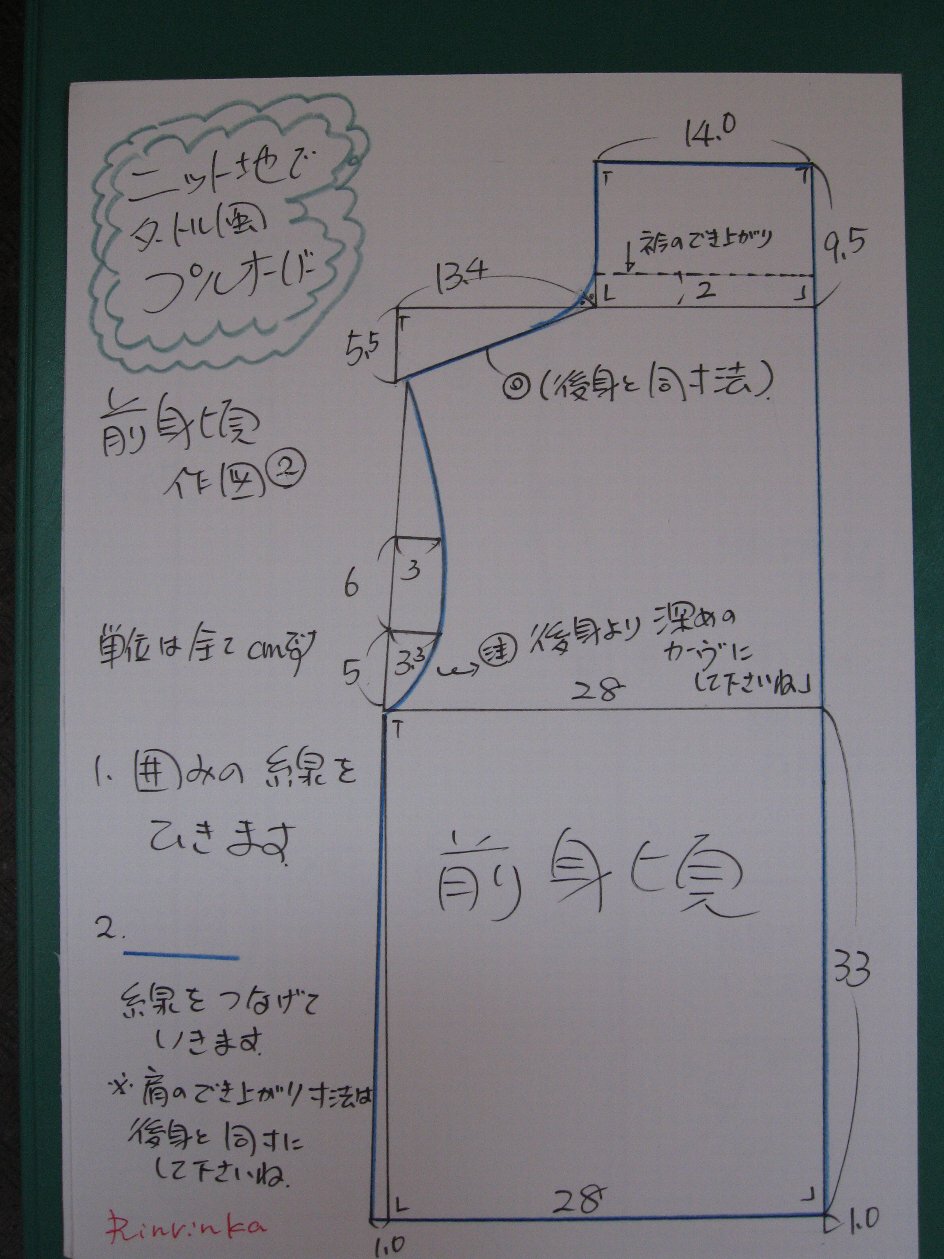 ニット地で
タートル風
プルオーバー
前身頃
作図②
単位は全てcmです
1. 囲みの線を
ひきます
2.
線をつなげて
いきます
※肩のでき上がり寸法は
後身と同寸に
して下さいね
Rinrinka
14.0
9.5
衿のでき上がり
2
13.4
5.5
◎(後身と同寸法)
6
3
5
3.3
注 後身より深めの
カーヴに
して下さいね
28
前身頃
33
28
1.0
1.0